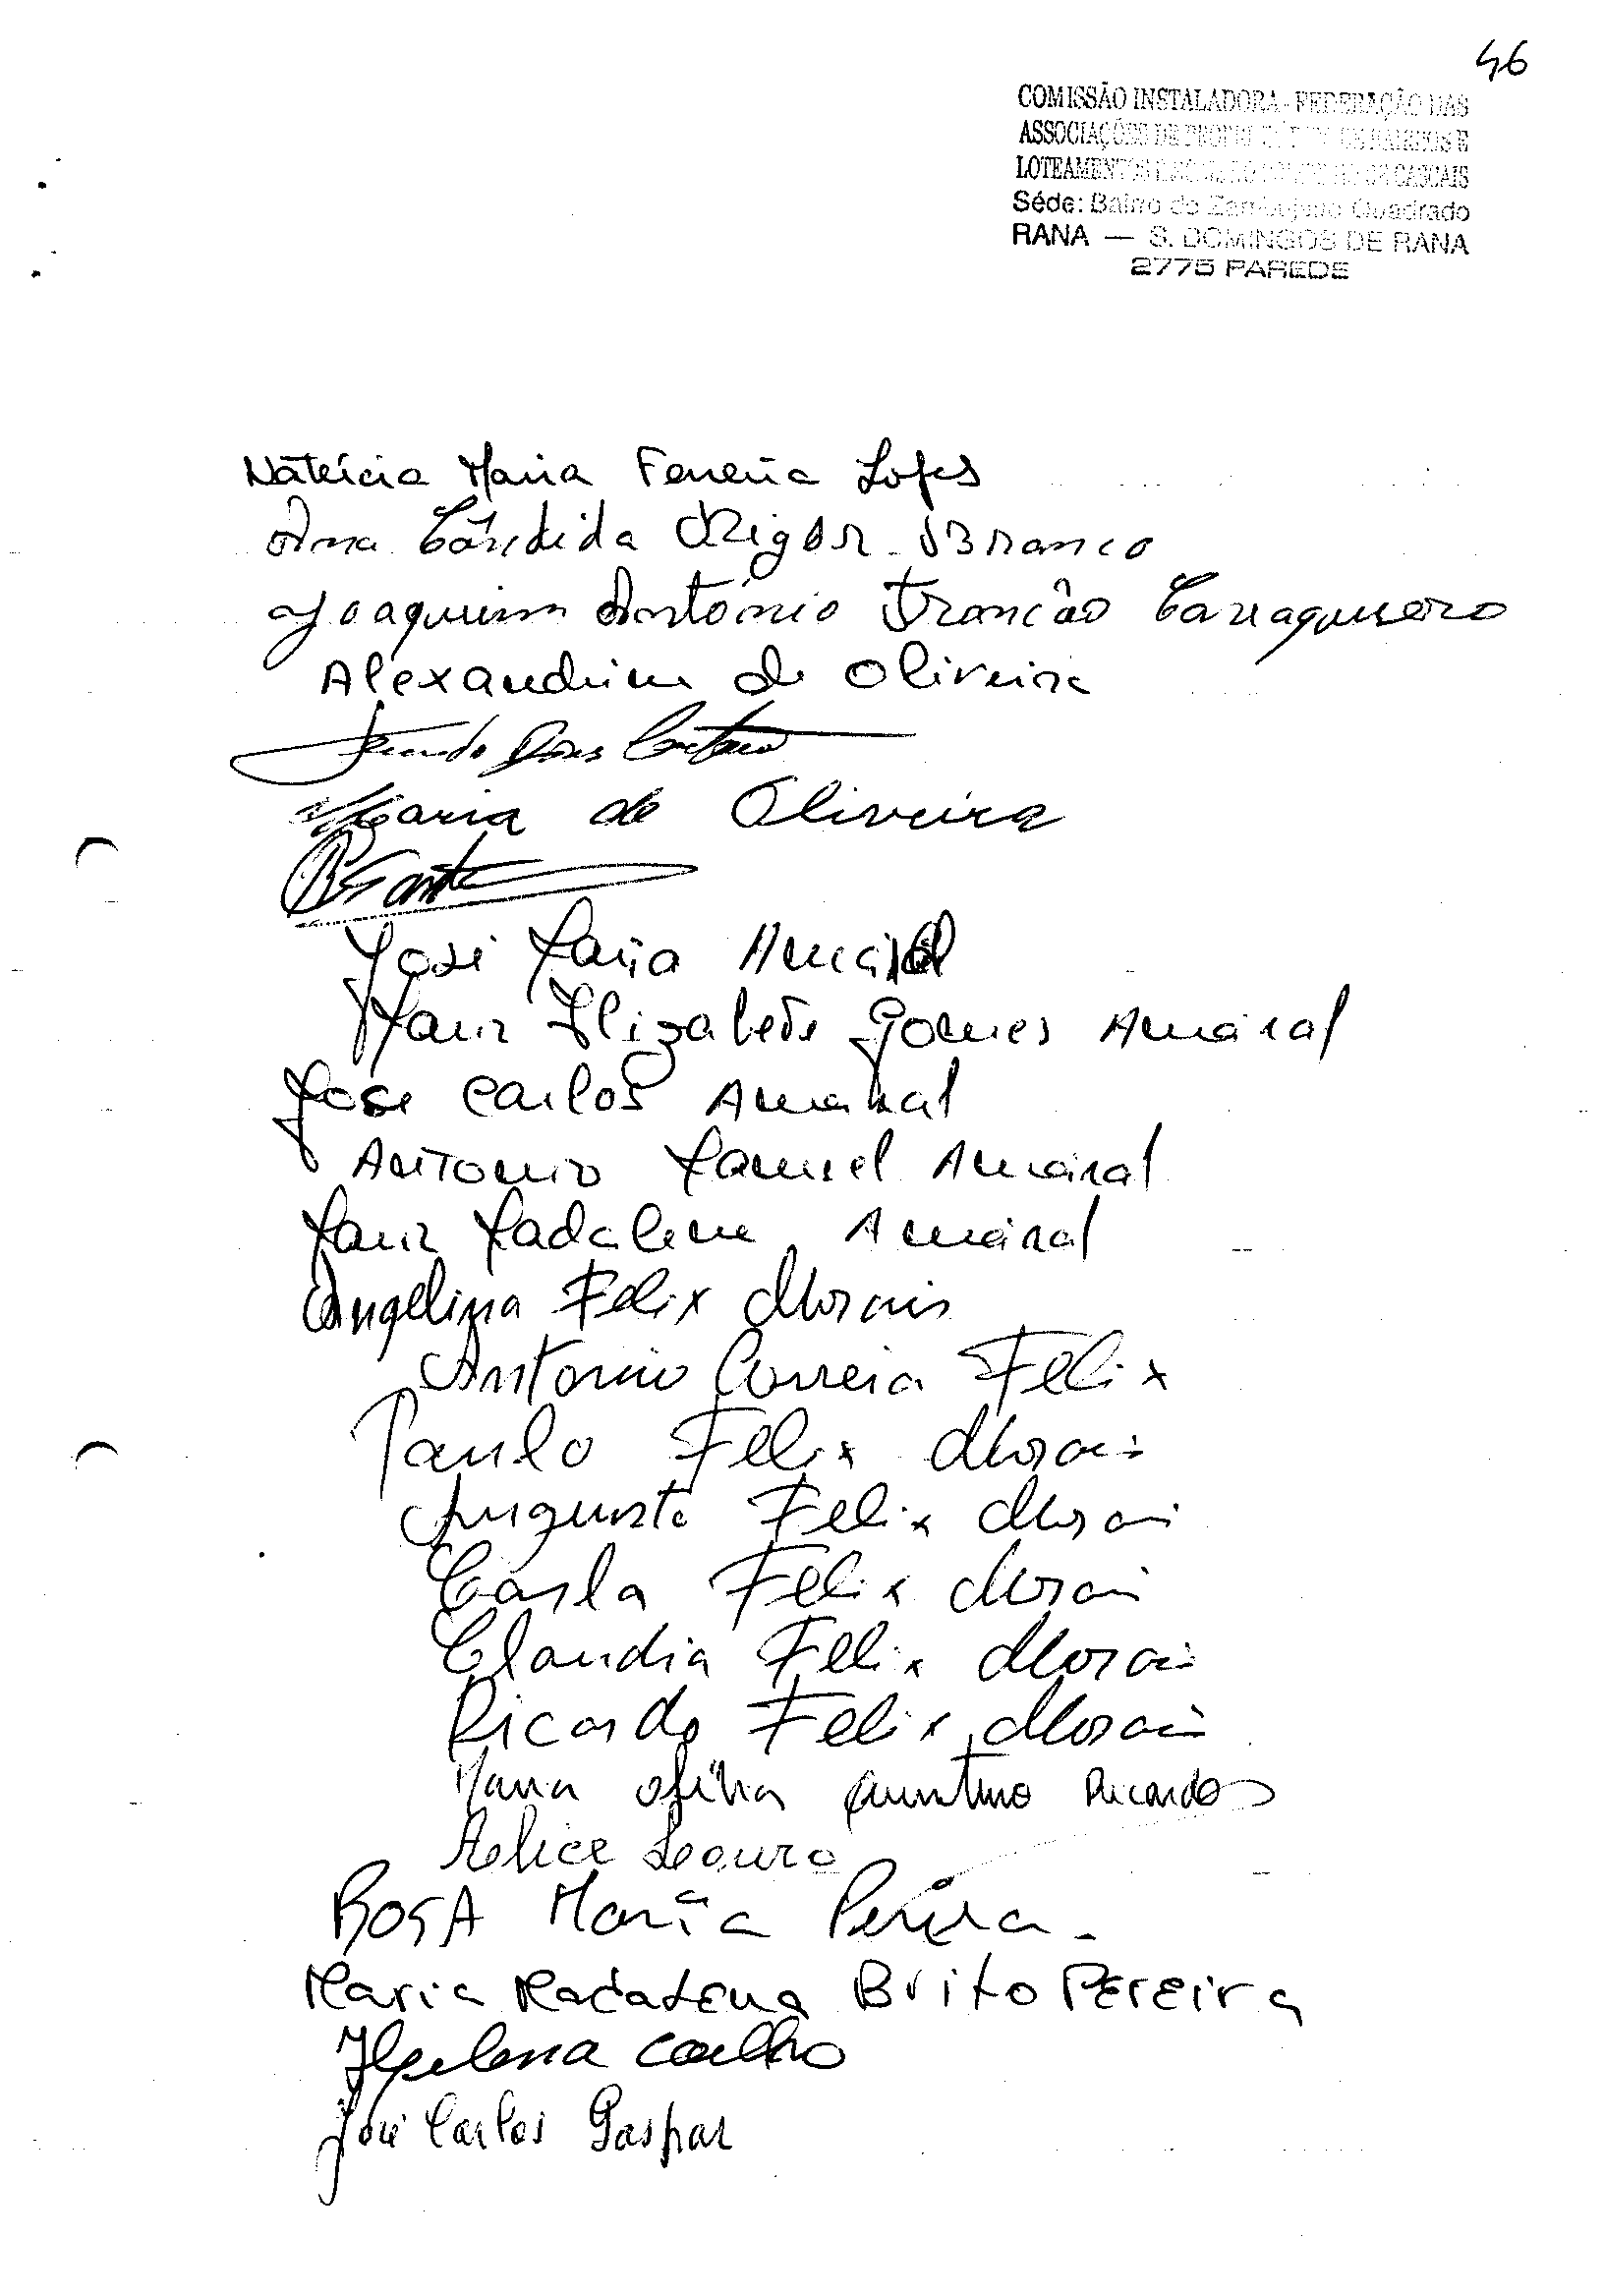 46
COMISSÃO INSTALADORA - FEDERAÇÃO DAS
ASSOCIAÇÕES DE BAIRROS E
LOTEAMENTOS CASCAIS
Séde: Bairro do Zambujeiro Quadrado
RANA — S. DOMINGOS DE RANA
2775 PAREDE
Natércia Maria Ferreira Lopes
Ana Cândida Rigor Branco
Joaquim António Francão Carraqueiro
Alexandrina de Oliveira
Caetano
Maria de Oliveira
José Maria Amaral
Maria Elizabete Gomes Amaral
José Carlos Amaral
Antonio Manuel Amaral
Maria Madalena Amaral
Angelina Felix Morais
Antonio Correia Felix
Paulo Felix Morais
Augusto Felix Morais
Carla Felix Morais
Claudia Felix Morais
Ricardo Felix Morais
Maria Quintino Ricardo
Alice Louro
ROSA Maria Pereira
Maria Madalena Brito Pereira
Helena Coelho
José Carlos Gaspar